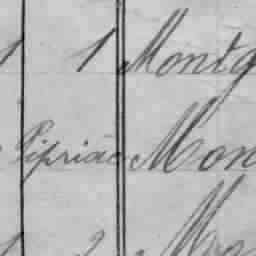 1 1 Montg
Pipriac Mon
1 2 Mo